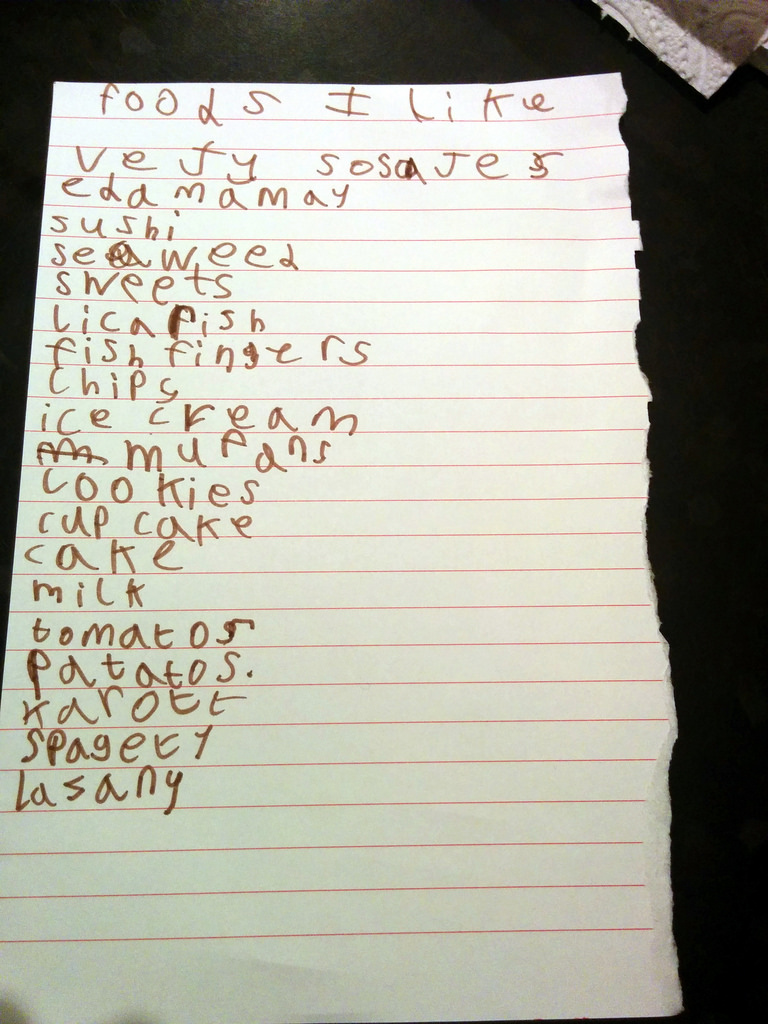 foods I like
vejy sosajes
edamamay
sushi
seaweed
sweets
licafish
fish fingers
chips
ice cream
mufans
cookies
cup cake
cake
milk
tomatos
patatos.
karott
spagety
lasany